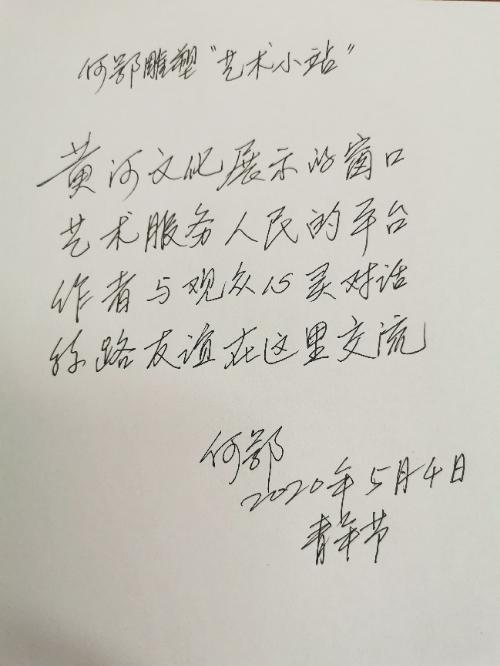 何鄂雕塑“艺术小站”
黄河文化展示的窗口
艺术服务人民的平台
作者与观众心灵对话
丝路友谊在这里交流
何鄂
2020年5月4日
青年节